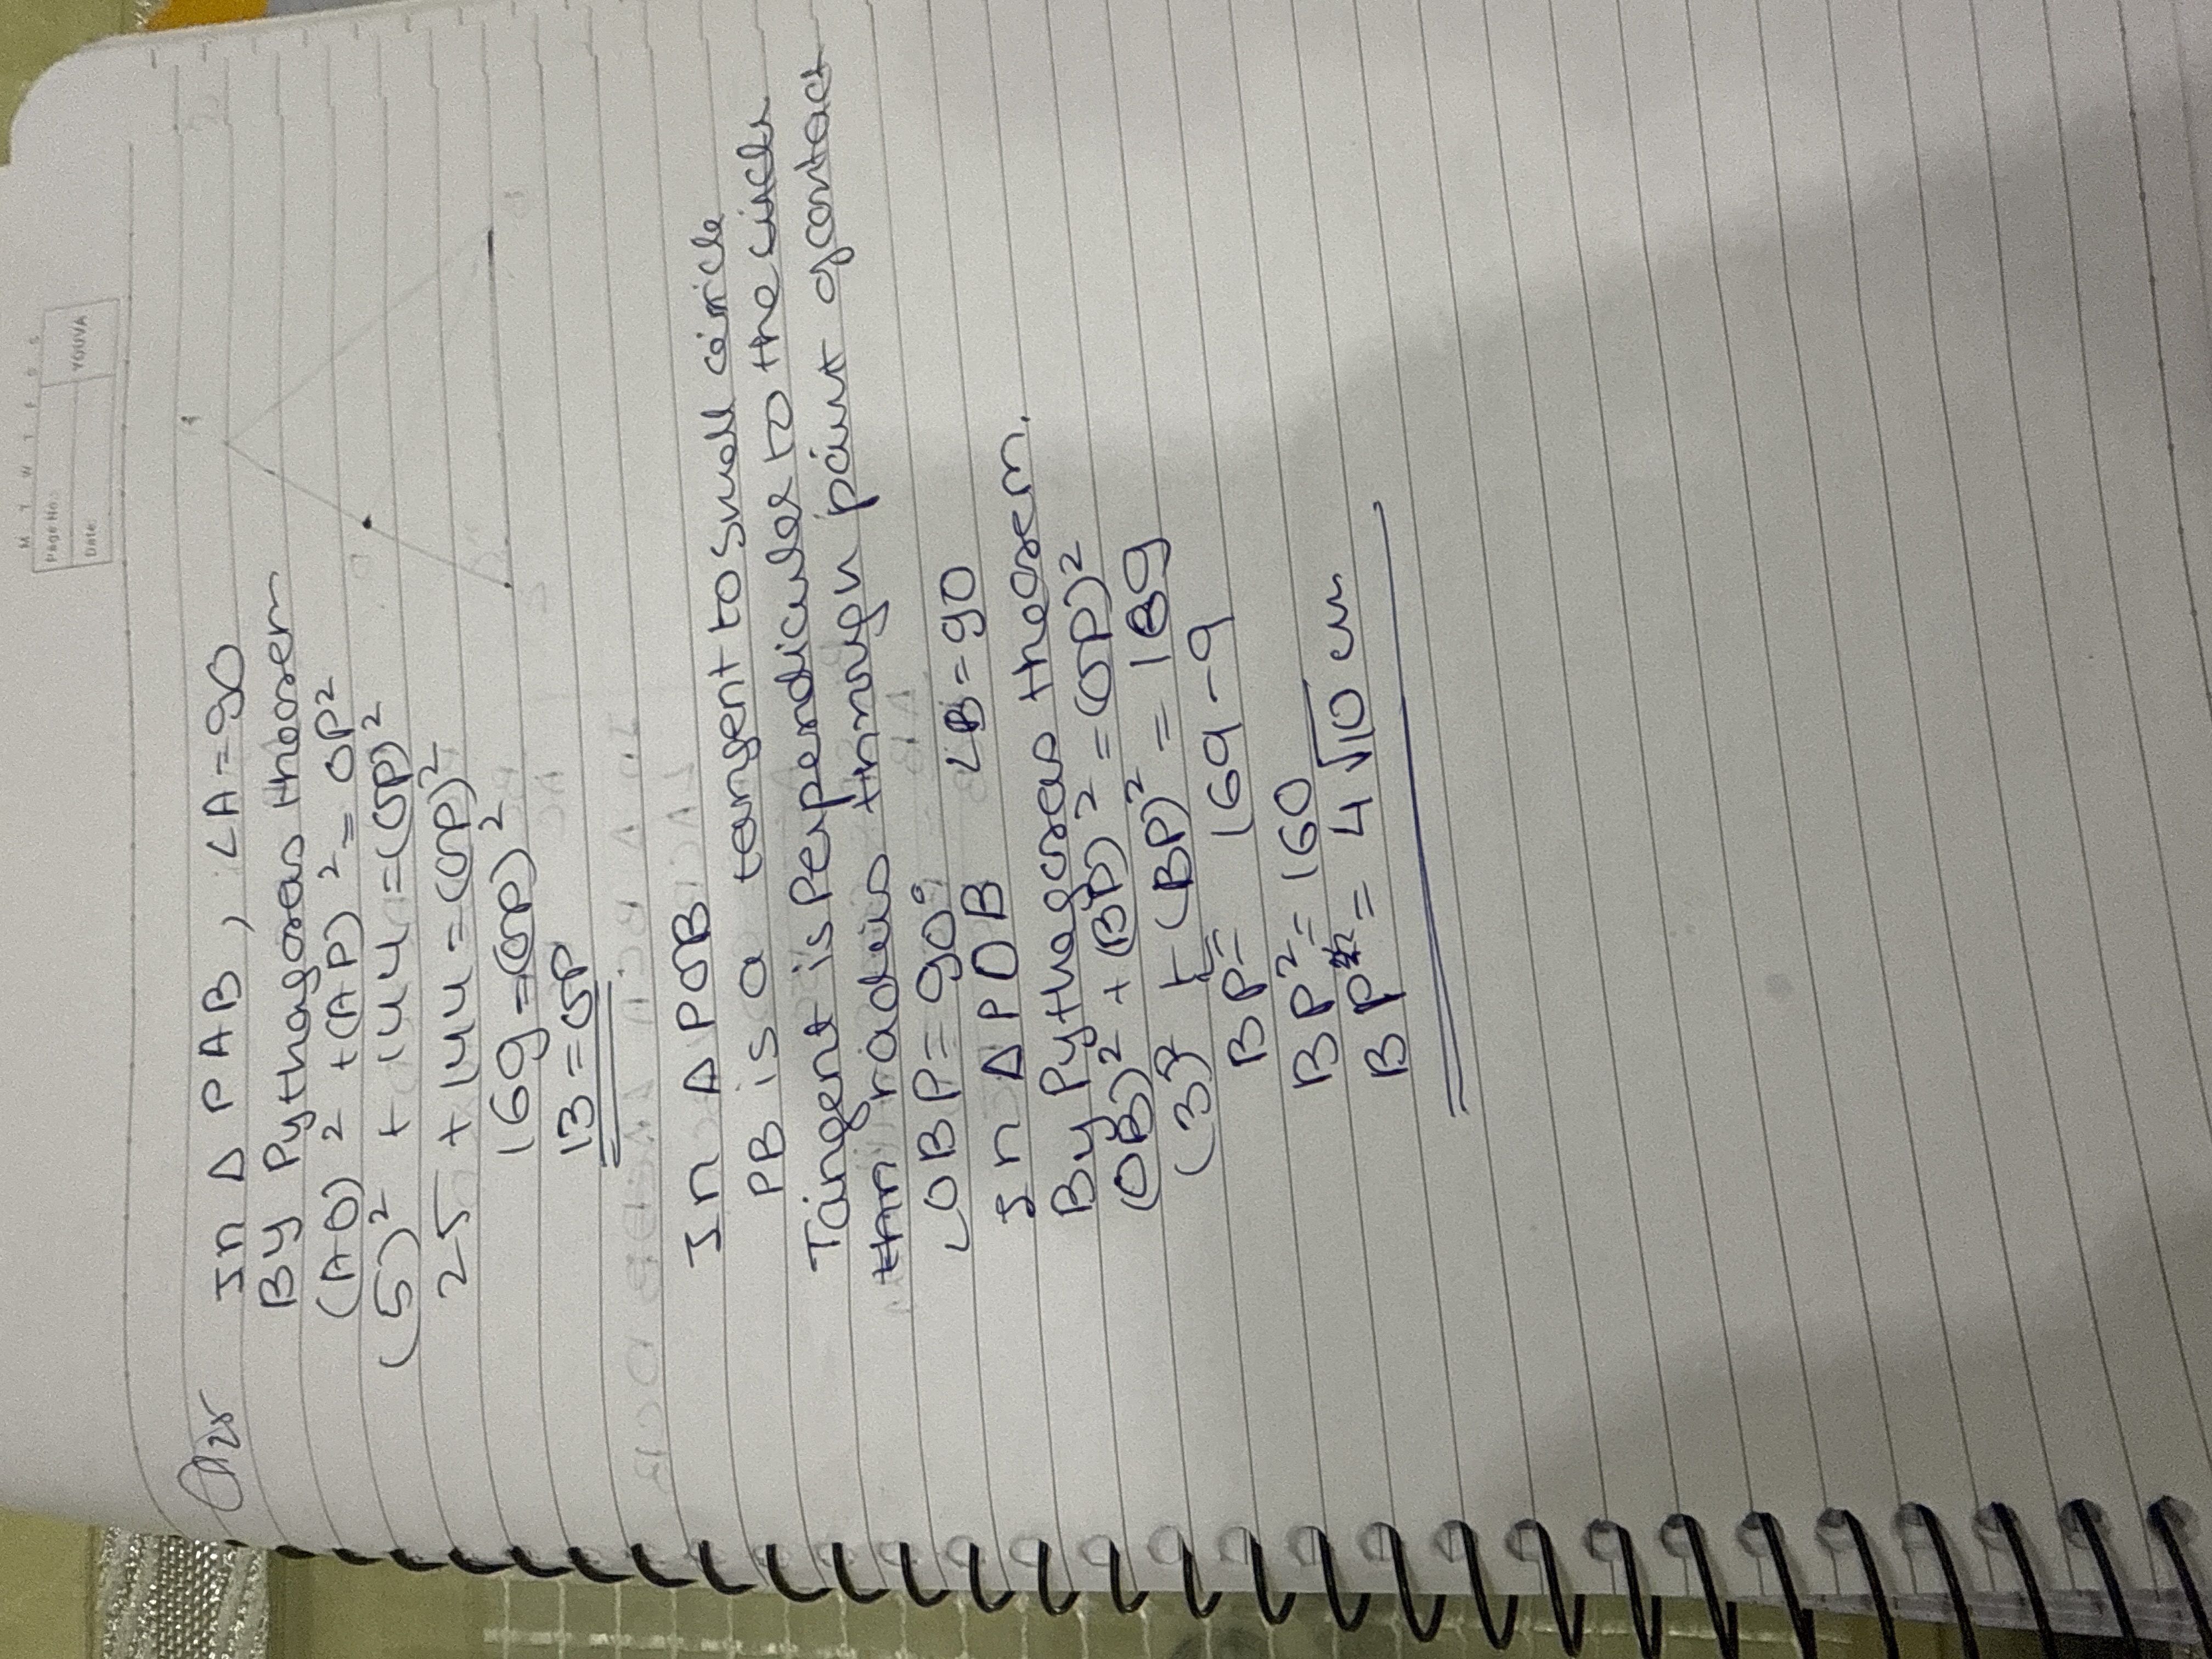 M T W T F S S
Page No.:
Date:
YOUVA
Ans In Δ PAB, ∠A=90
By Pythagoras theorem
(AO)² + (AP)² = OP²
(5)² + 144 = (OP)²
25 + 144 = (OP)²
169 = (OP)²
13 = OP
In Δ POB
PB is a tangent to small circle
Tangent is perpendicular to the circle
than radius through point of contact
∠OBP = 90°
In Δ POB ∠B = 90
By Pythagoras theorem.
(OB)² + (BP)² = (OP)²
(3)² + (BP)² = 169
BP = 169 - 9
BP² = 160
BP = 4√10 cm